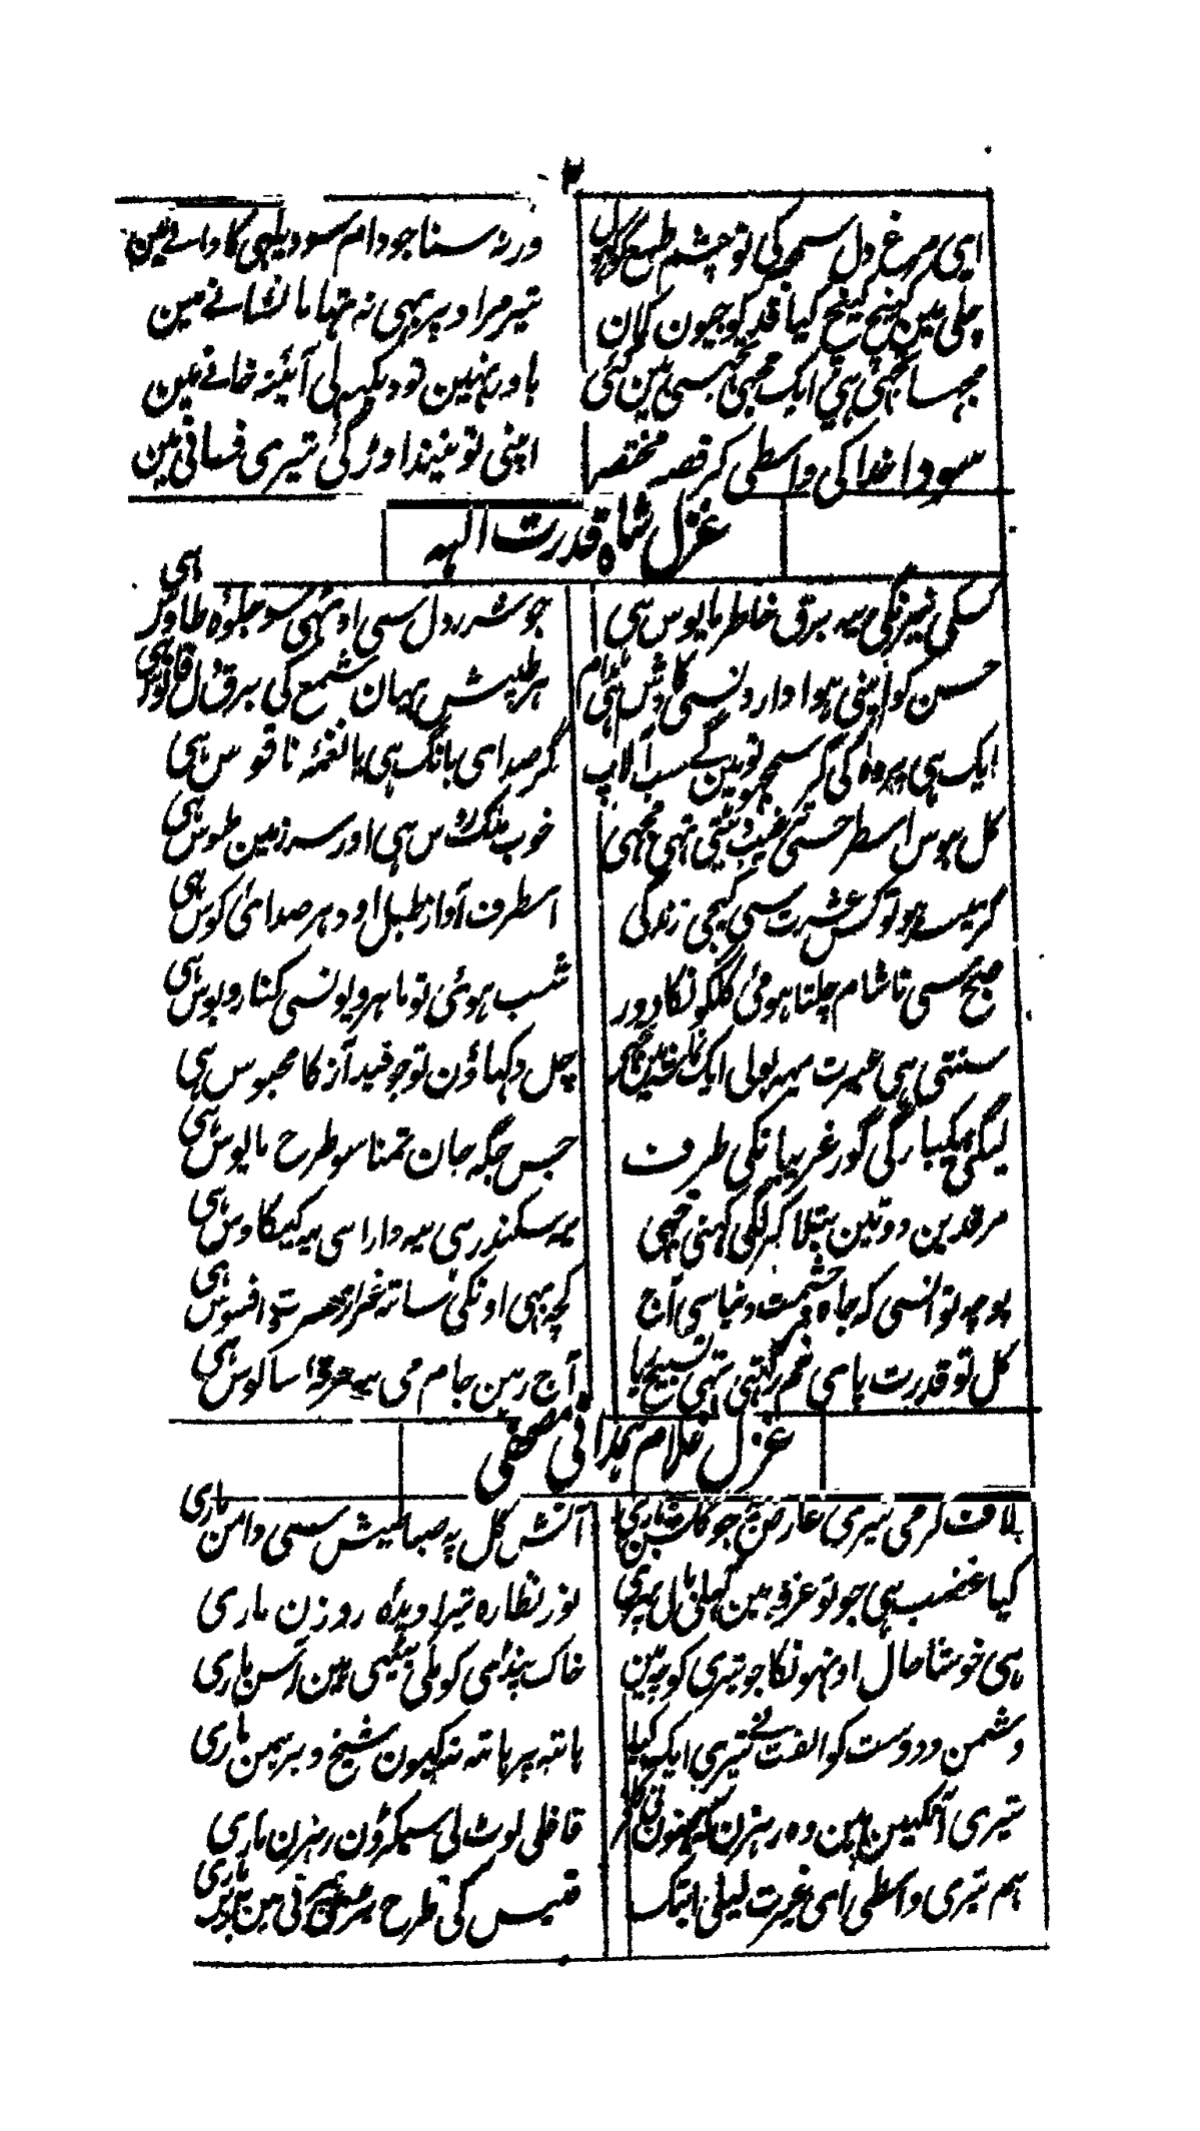 ۲
ایی مرغ دل سمجہ کی تو چشم طمع کہول
ورنہ سنا جو دام سو دیکہی کا دانے مین
چلی مین کہینچ کہینچ کیا قد کو جیون کمان
تیر مراد پر بہی نہ تہا یا نشانے مین
مجہسا تجہی ہی ایک مجہی تجہسی ہین کئی
باور نہین تو دیکہہ لی آئینہ خانے مین
سودا خدا کی واسطی کر قصہ مختصر
اپنی تو نیند اوڑ گئی تیری فسانی مین
غزل شاہ قدرت اللہ
کسکی نیرنگی یہ برق خاطر مایوس ہی
جو شرر دل سی اوٹہی سو جلوہ طاوس ہی
حسن کو اپنی ہوا دارونسی کاوش ہی مدام
ہر طپش یہان شمع کی برق دل فانوس ہی
ایک ہی پردہ کی گر سمجہو تو ہین گے سب آلاپ
گر صدای بانگ ہی یا نغمۂ ناقوس ہی
کل ہوس اسطرحسی ترغیب دیتی تہی مجہی
خوب ملک روس ہی اور سرزمین طوس ہی
گر میسر ہو تو کس عشرت سی کیجی زندگی
اسطرف آواز طبل اودہر صدائی کوس ہی
صبح سی تا شام چلتا ہو مئی گلگونکا دور
شب ہوئی تو ماہرویونسی کنار و بوس ہی
سنتی ہی عبرت یہہ بولی ایک تماشا مین تجہی
چل دکہاؤن تو جو قید آز کا محبوس ہی
لیگئی یکبارگی گور غریبانکی طرف
جس جگہ جان تمنا سو طرح مایوس ہی
مرقدین دو تین بتلا کر لگی کہنی مجہی
یہ سکندر ہی یہ دارا ہی یہ کیکاوس ہی
پوچہو تو انسی کہ جاہ و حشمت دنیا سی آج
کچہ بہی اونکی ساتہ غیر از حسرت و افسوس ہی
کل تو قدرت پای خم رکہتی تہی تسبیح یا
آج رہن جام می یہ خرقۂ سالوس ہی
غزل غلام ہمدانی مصحفی
لاف گرمی تیری عارض سی جو گلشن ماری
آتش گل پہ صبا طیش سی دامن ماری
کیا غضب ہی جو تو غرفہ مین کہلی بال پہری
نور نظارہ تیرا دیدۂ روزن ماری
ہی خوشا حال اونہونکا جو تیری کوچہ مین
خاک پنڈی کو ملی بیٹہی ہین آسن ماری
دشمن و دوست کو الفت نے تیری ایک کیا
ہاتہہ پر ہاتہہ نہ کیون شیخ و برہمن ماری
تیری آنکہین ہین وہ رہزن کہ جنہون نی کافر
قافلی لوٹ لی سیکڑون رہزن ماری
ہم تیری واسطی ای غیرت لیلی ابتک
قیس کی طرح